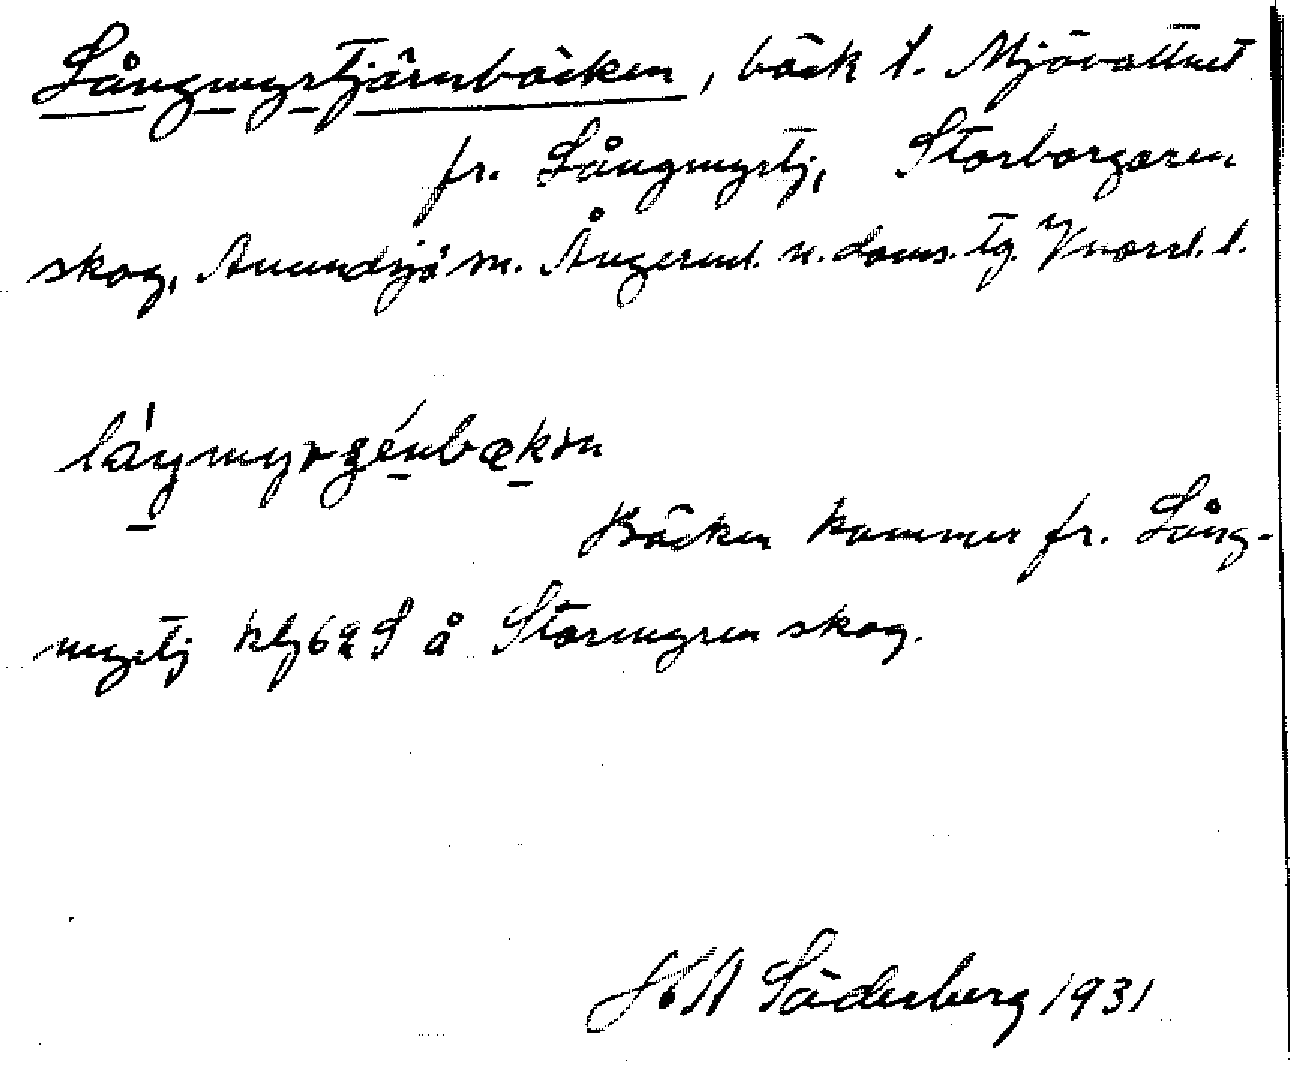 Långmyrtjärnbäcken, bäck t. Mjövattnet
fr. Långmyrtj, Storborgaren
skog, Anundsjö sn. Ångerml. n. doms. tg. Vnorrl. l.
Bäcken kommer fr. Lång-
myrtj å Stormyren skog.
H A Söderberg 1931